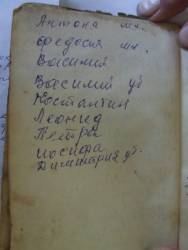 Антона мл.
Федосия мл.
Василий
Василий уб
Костантин
Леонид
Петра
Иосифа
Димитрия уб.